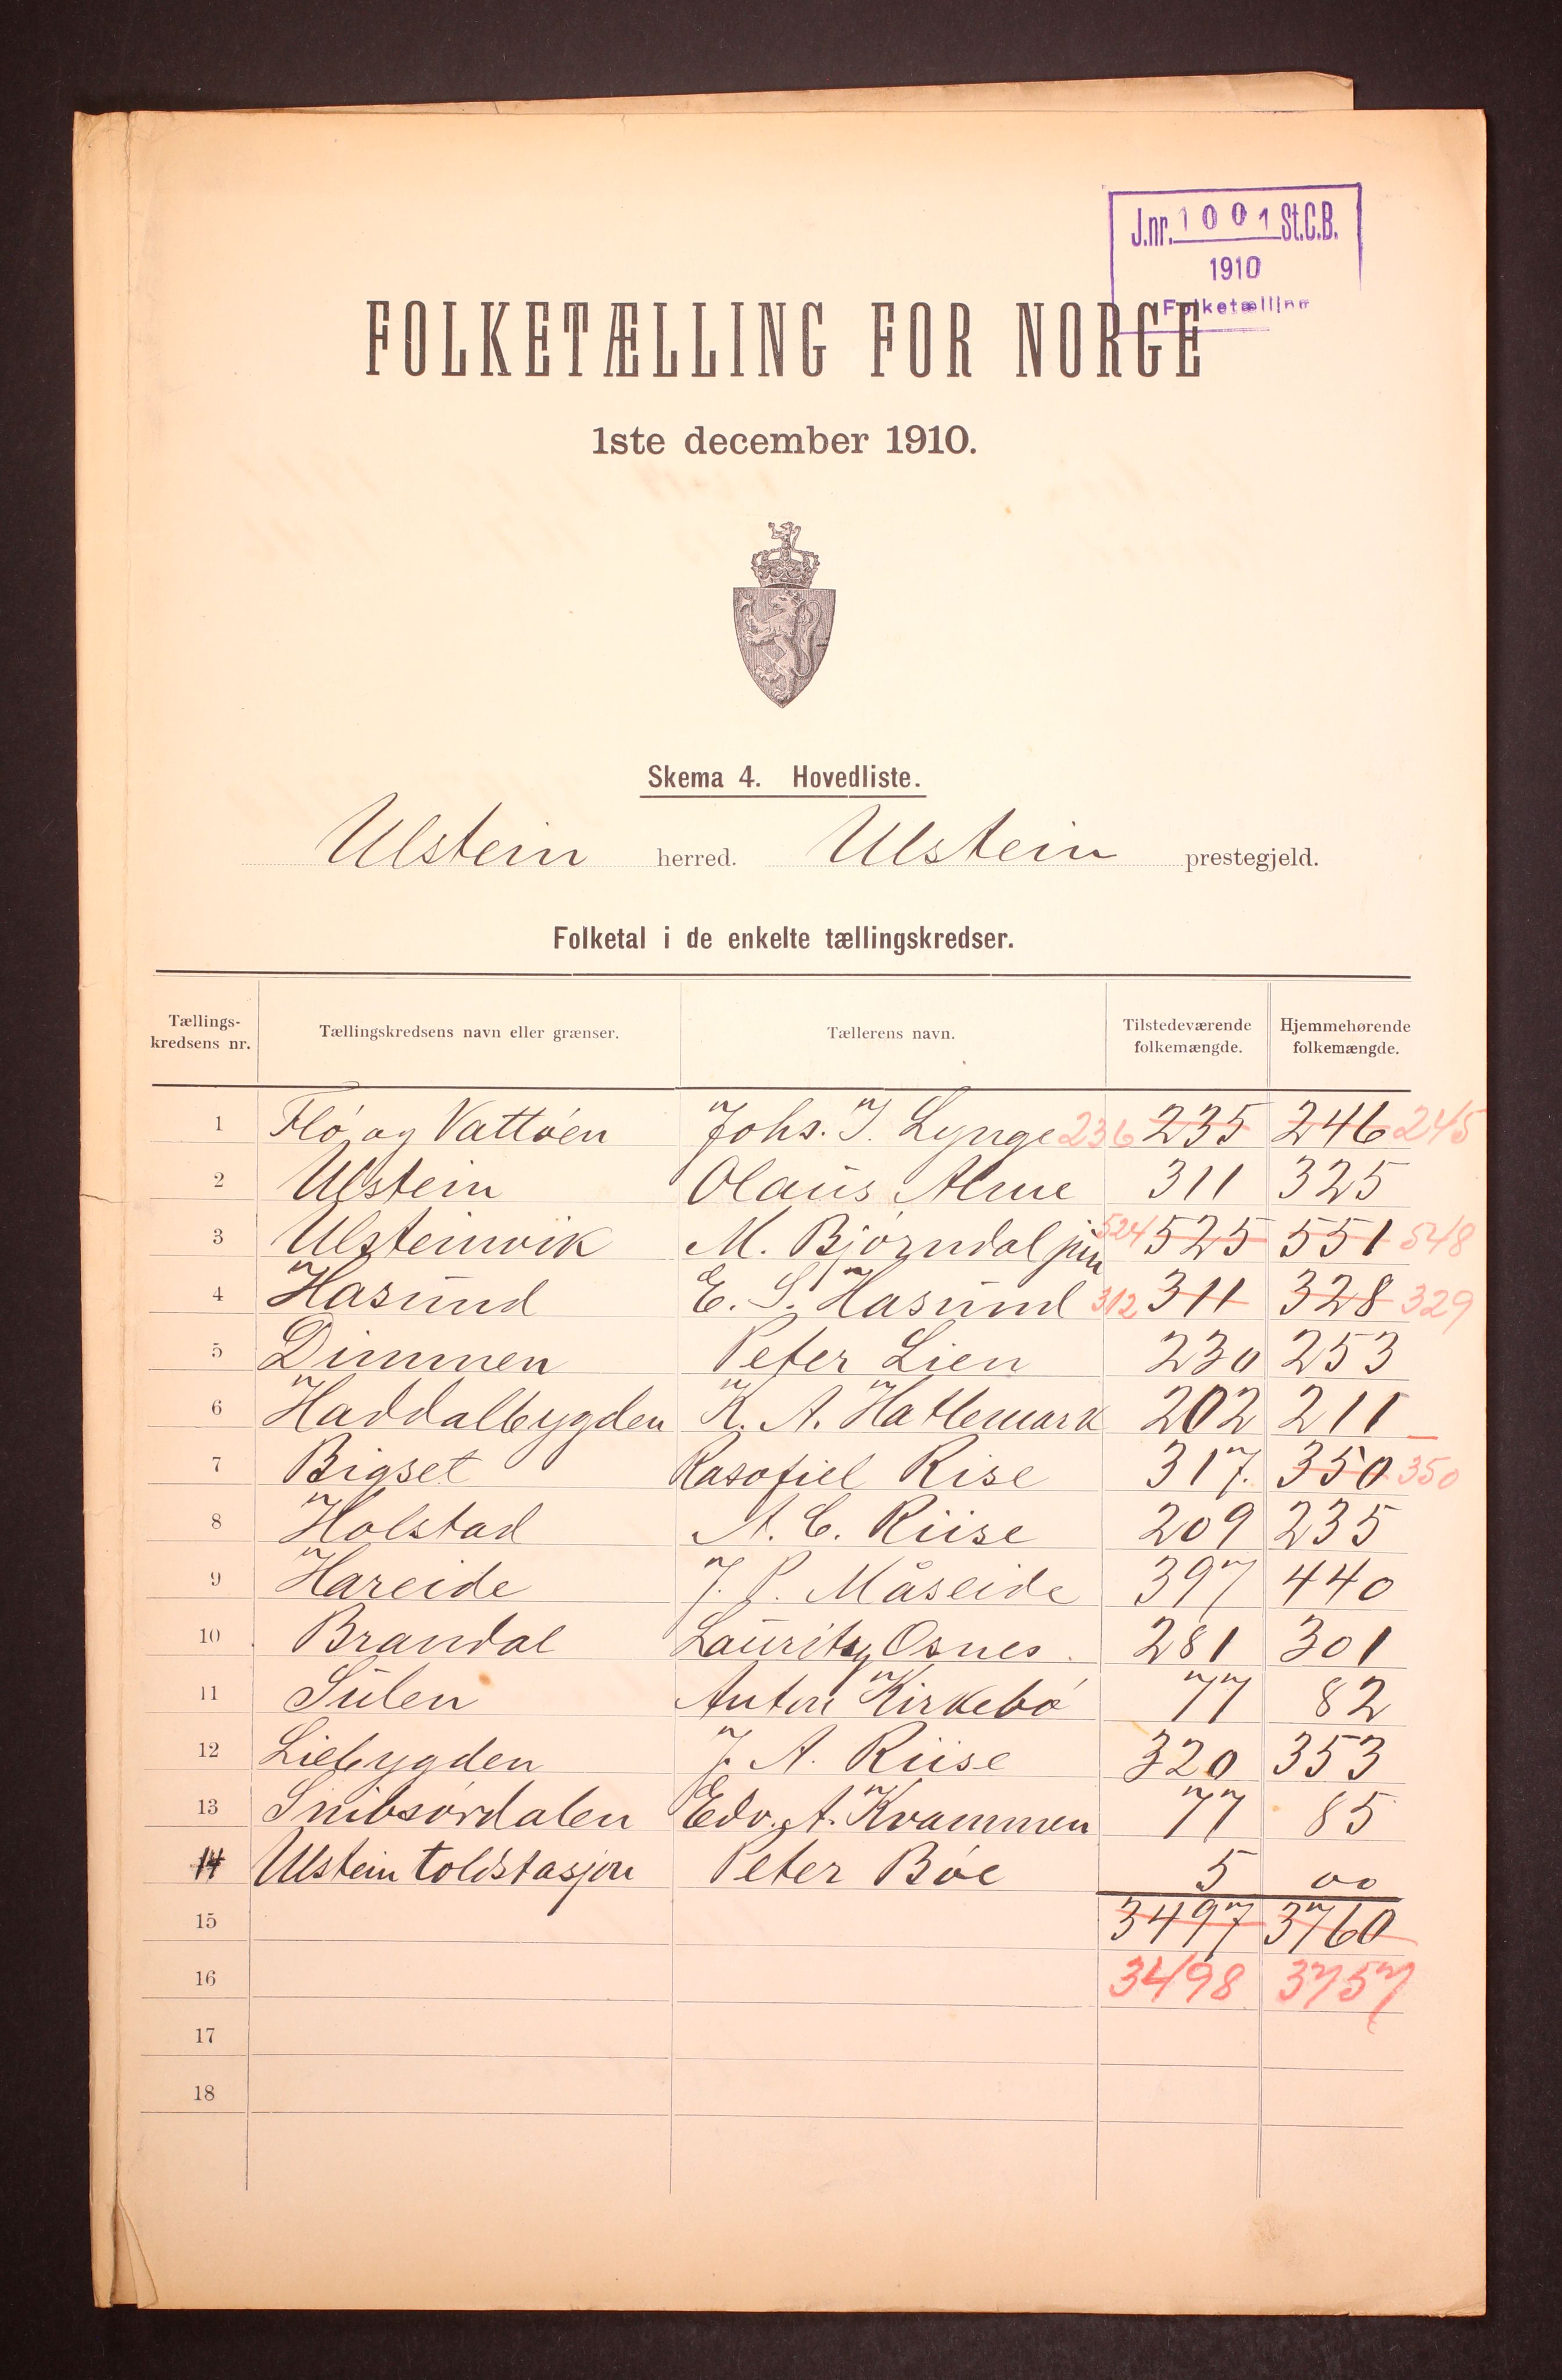 J.nr. 1001 St.C.B.
1910
Folketælling
FOLKETÆLLING FOR NORGE
1ste december 1910.
Skema 4. Hovedliste.
Ulstein herred. Ulstein prestegjeld.
Folketal i de enkelte tællingskredser.
Tællings-kredsens nr. Tællingskredsens navn eller grænser. Tællerens navn. Tilstedeværende folkemængde. Hjemmehørende folkemængde.
1 Fló og Vattóen Johs. J. Lynge 236 235 246 245
2 Ulstein Olaus Alme 311 325
3 Ulsteinvik M. Bjørndal jun 524 525 551 548
4 Hasund E. S. Hasund 312 311 328 329
5 Dimmen Peter Lien 230 253
6 Haddalbygden K. A. Hatlemark 202 211
7 Bigset Rasofiel Rise 317. 350 350
8 Holstad A. C. Riise 209 235
9 Hareide J. P. Måseide 397 440
10 Brandal Lauritz Osnes. 281 301
11 Sulen Anton Kirkebó 77 82
12 Liebygden J. A. Riise 320 353
13 Snibsórdalen Edv. A. Kvammen 77 85
14 Ulstein toldstasjon Peter Bóe 5 00
15 3497 3760
16 3498 3757
17
18